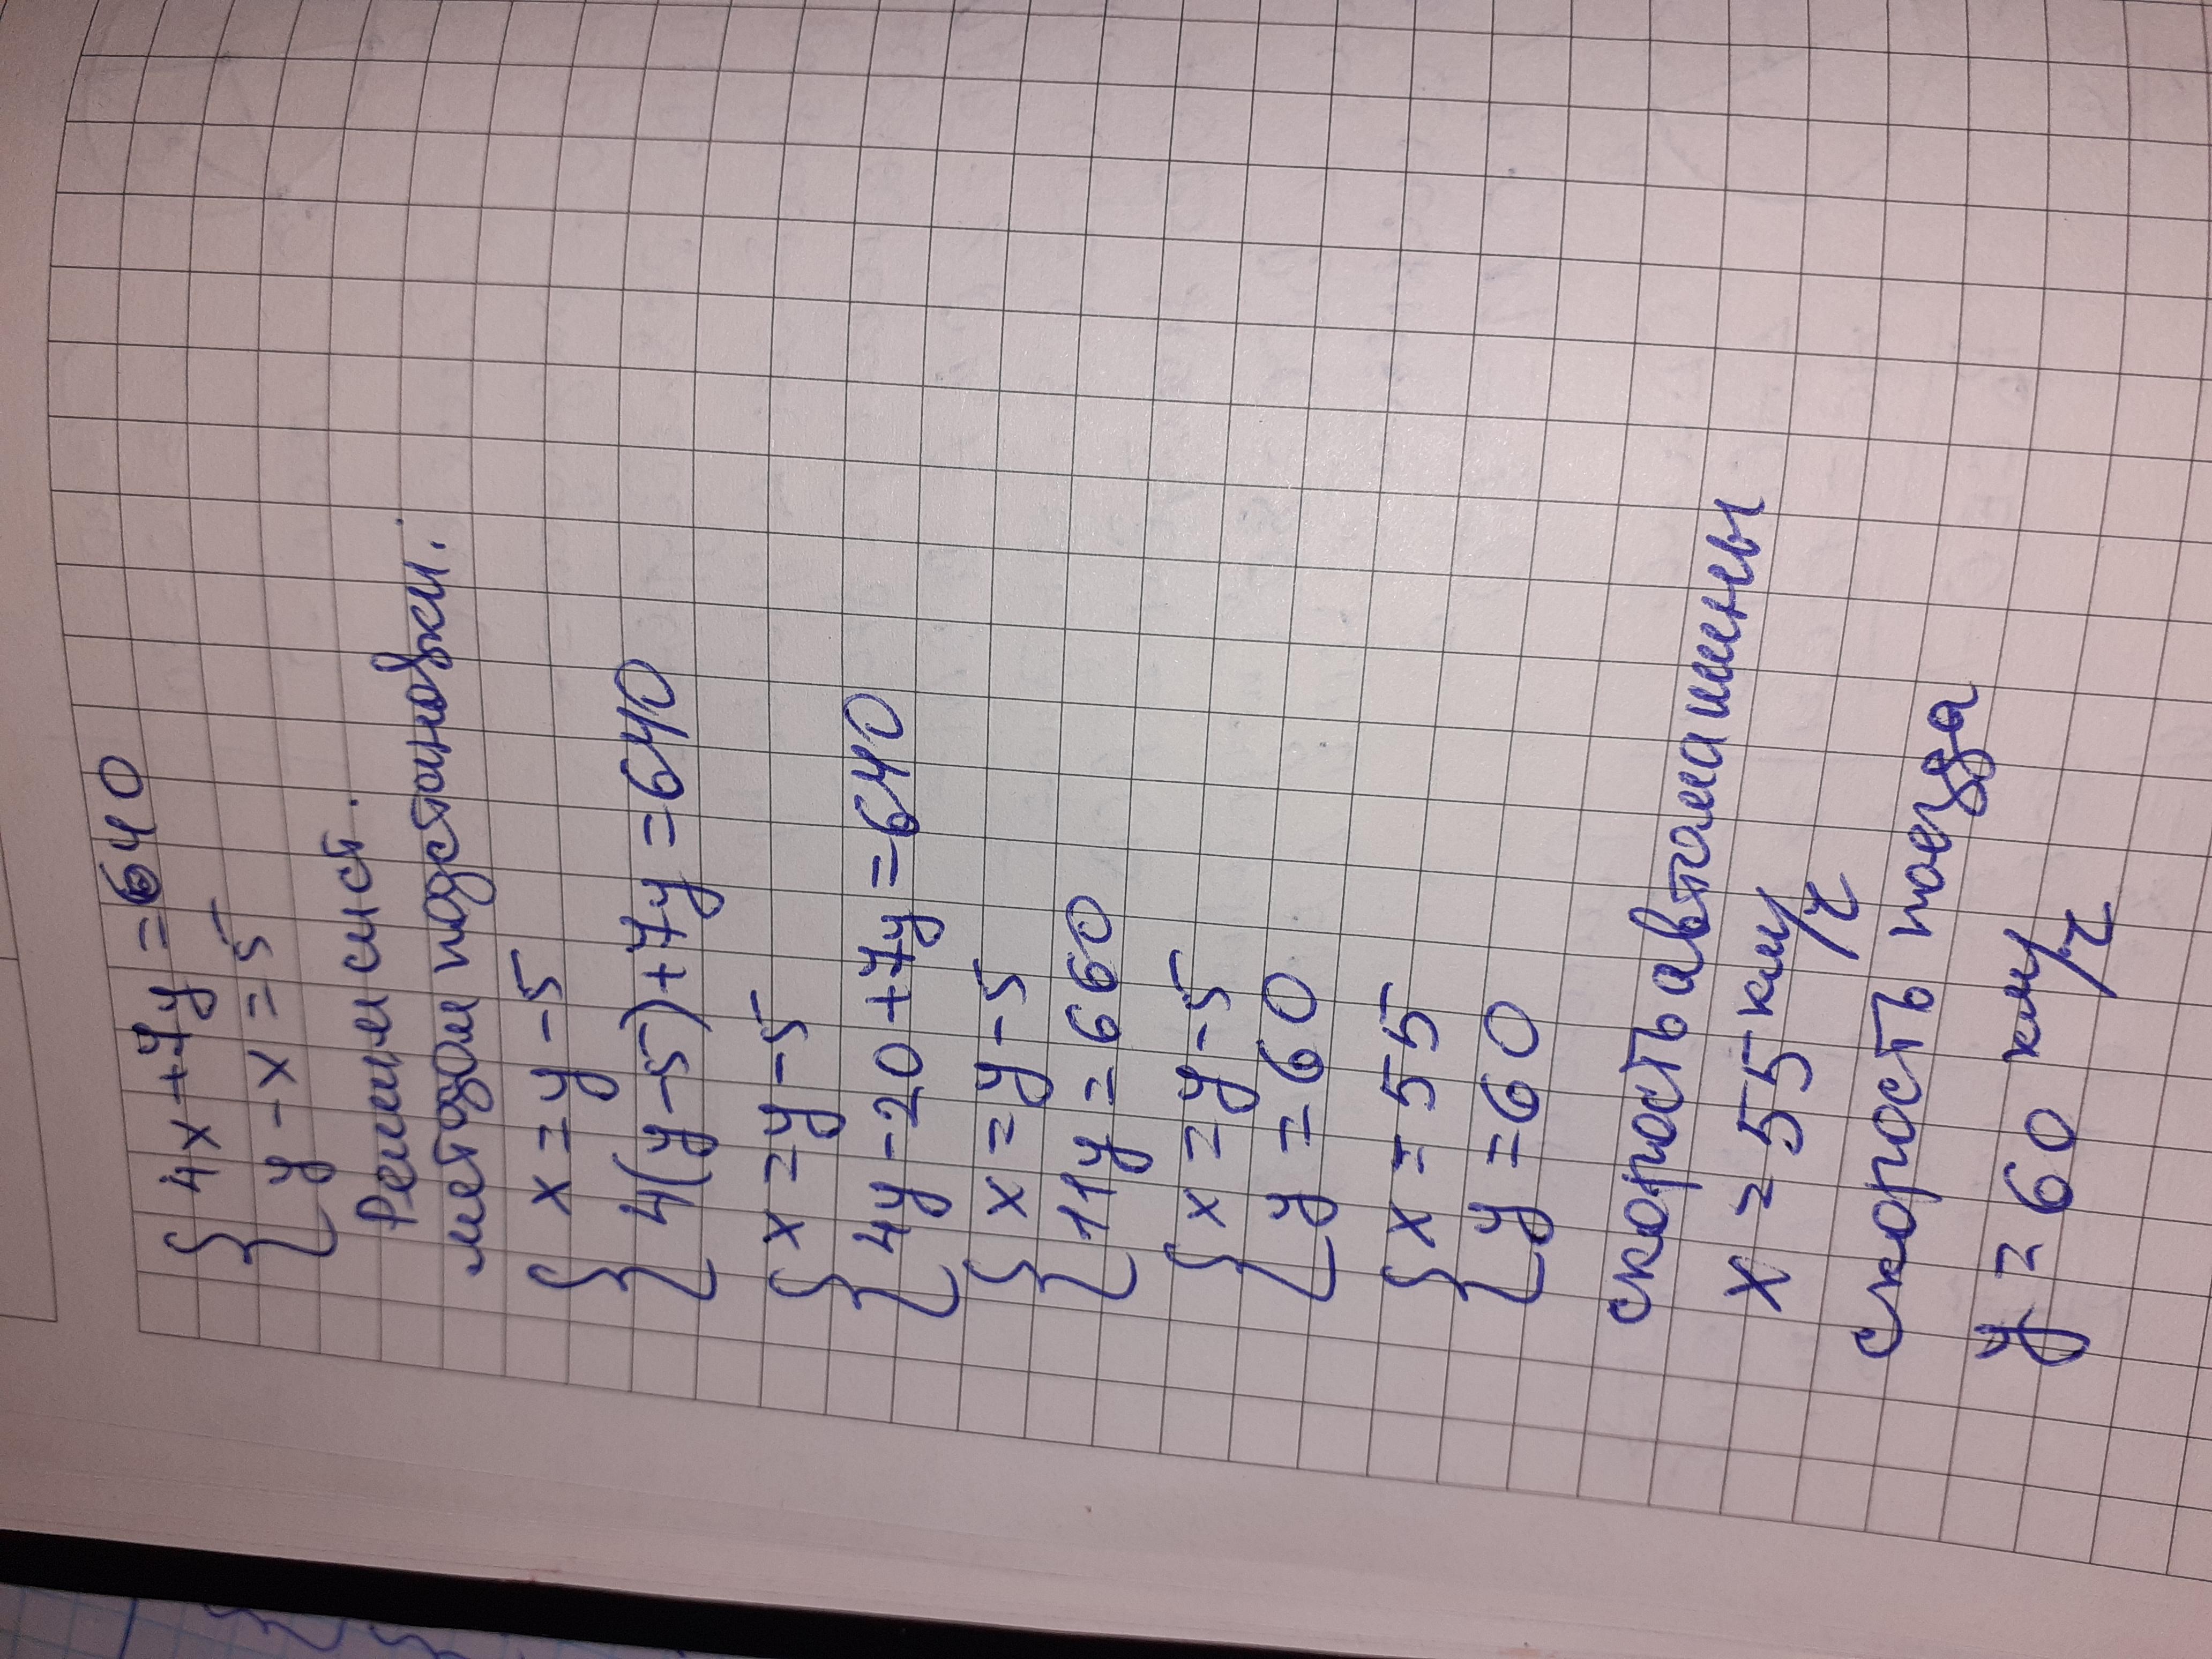 { 4x+7y=640
{ y-x=5
Решим сист.
методом подстановки.
{ x=y-5
{ 4(y-5)+7y=640
{ x=y-5
{ 4y-20+7y=640
{ x=y-5
{ 11y=660
{ x=y-5
{ y=60
{ x=55
{ y=60
скорость автомашины
x=55км/ч
скорость поезда
y=60 км/ч